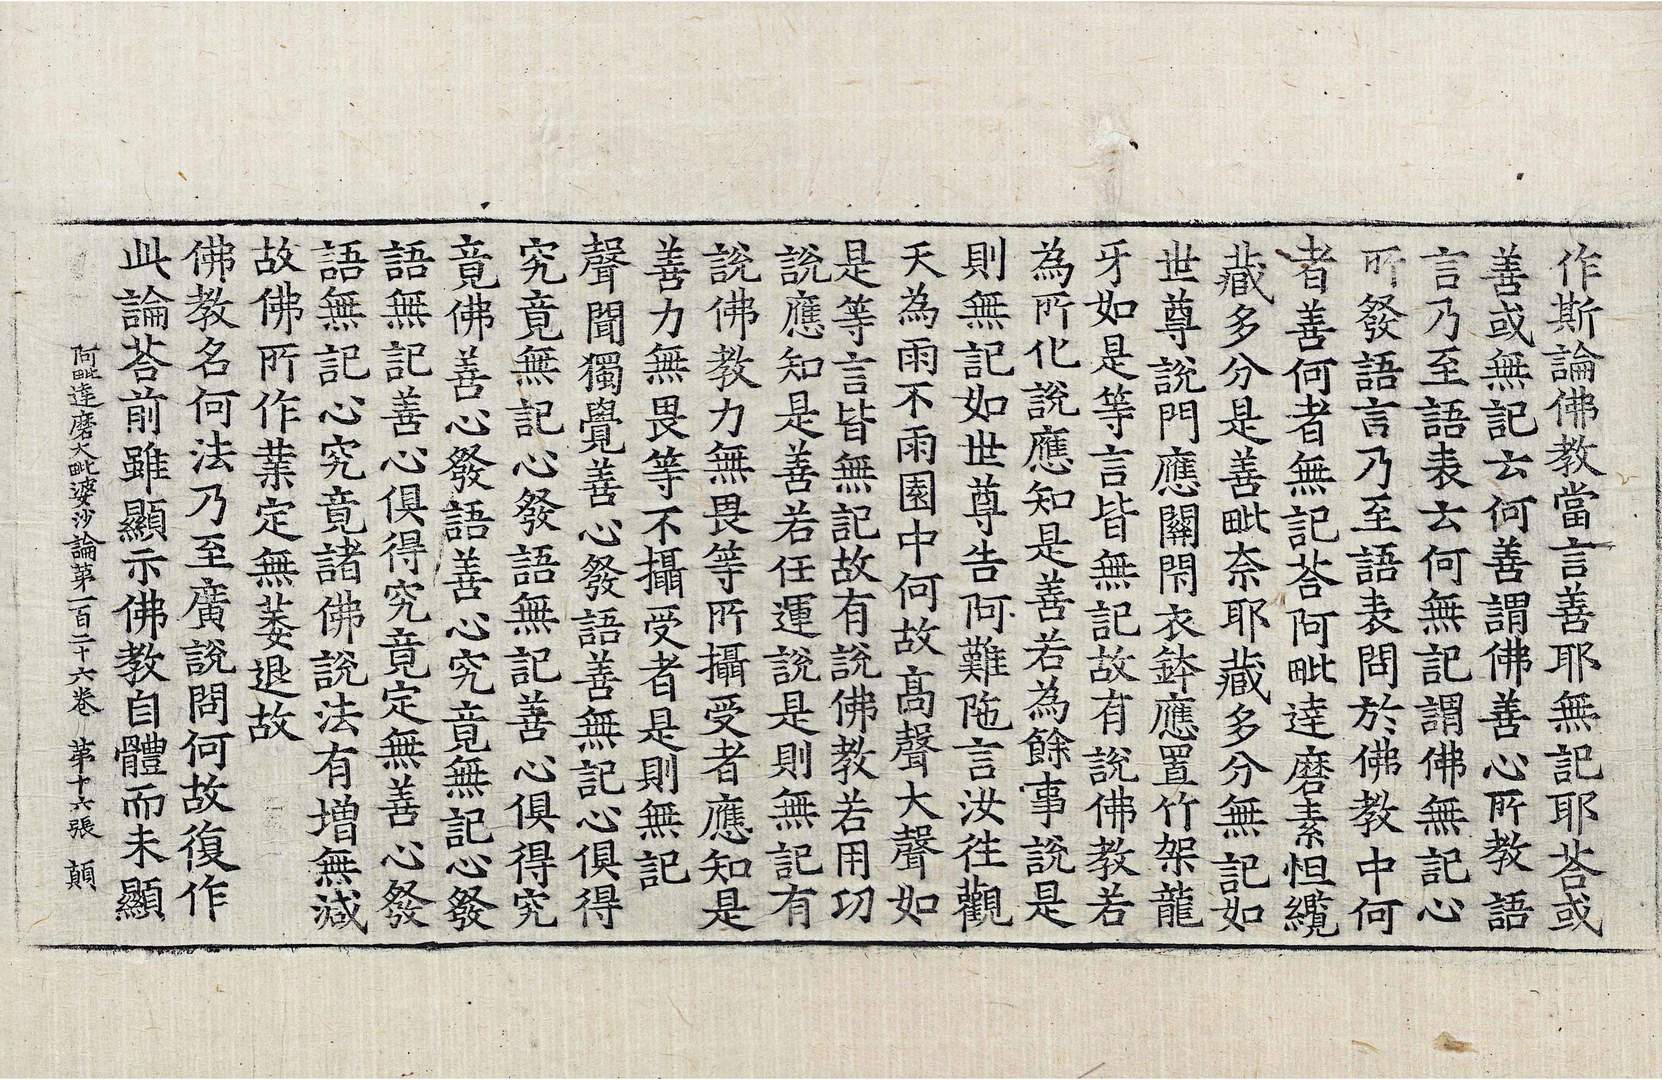 作斯論佛教當言善耶無記耶荅或
善或無記云何善謂佛善心所教語
言乃至語表云何無記謂佛無記心
所發語言乃至語表問於佛教中何
者善何者無記荅阿毗達磨素怛纜
藏多分是善毗奈耶藏多分無記如
世尊說門應關閇衣鉢應置竹架龍
牙如是等言皆無記故有說佛教若
為所化說應知是善若為餘事說是
則無記如世尊告阿難陁言汝往觀
天為雨不雨園中何故高聲大聲如
是等言皆無記故有說佛教若用功
說應知是善若任運說是則無記有
說佛教力無畏等所攝受者應知是
善力無畏等不攝受者是則無記
聲聞獨覺善心發語善無記心俱得
究竟無記心發語無記善心俱得究
竟佛善心發語善心究竟無記心發
語無記善心俱得究竟定無善心發
語無記心究竟諸佛說法有增無減
故佛所作業定無萎退故
佛教名何法乃至廣說問何故復作
此論荅前雖顯示佛教自體而未顯
阿毗達磨大毗婆沙論第一百二十六卷 第十六張 顛